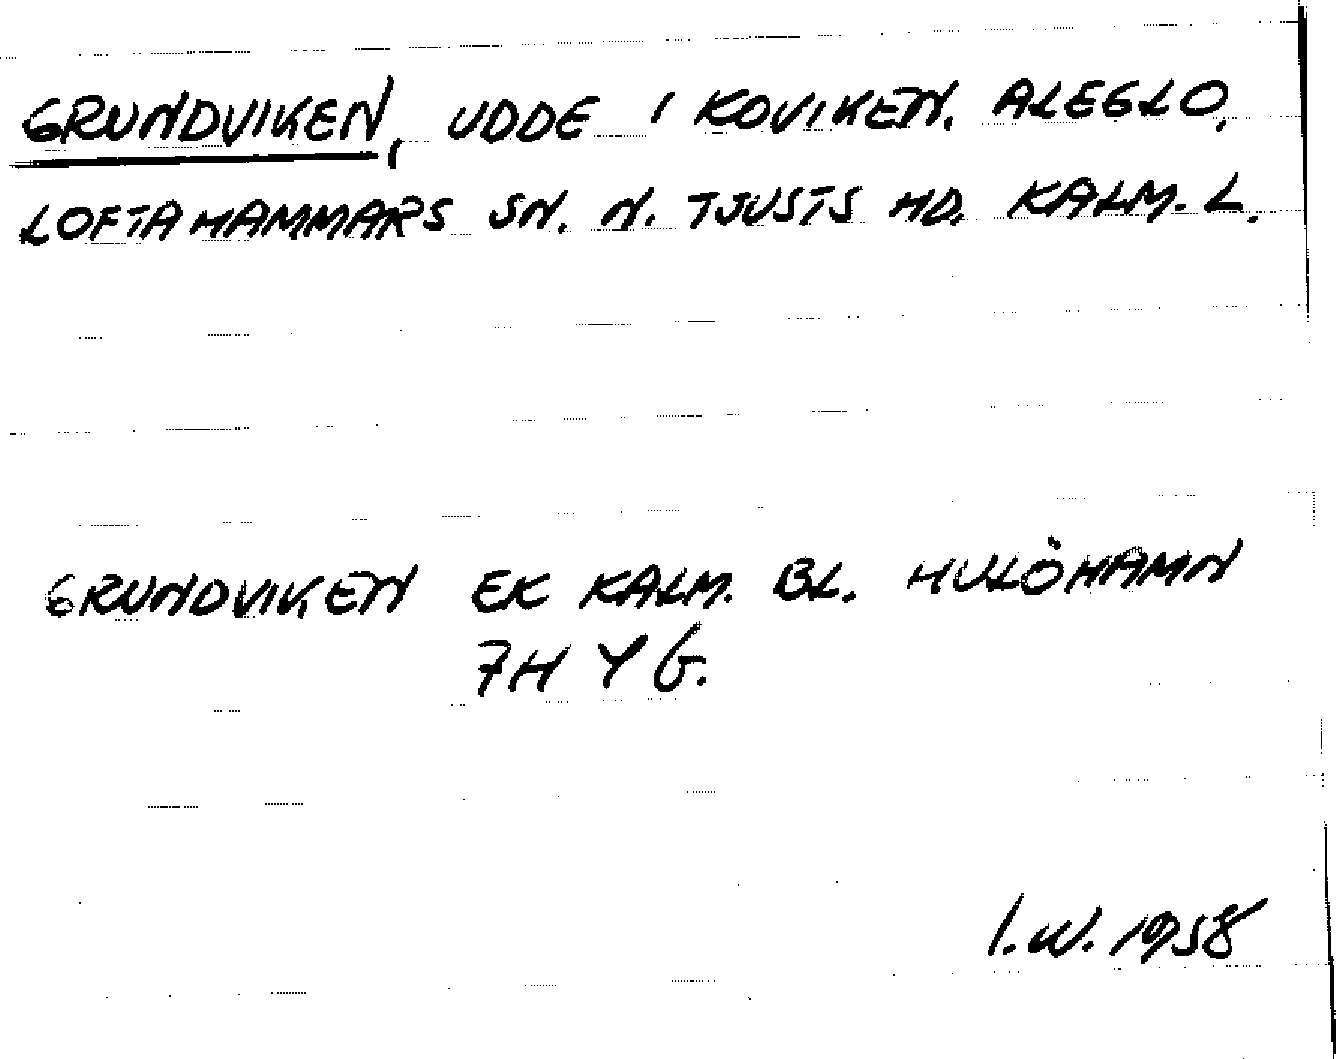 GRUNDVIKEN, UDDE I KOVIKEN. ALEGLO,
LOFTAHAMMARS SN. N. TJUSTS HD. KALM. L.
GRUNDVIKEN EK KALM. BL. HULÖHAMN
7H Y G.
I.W. 1958